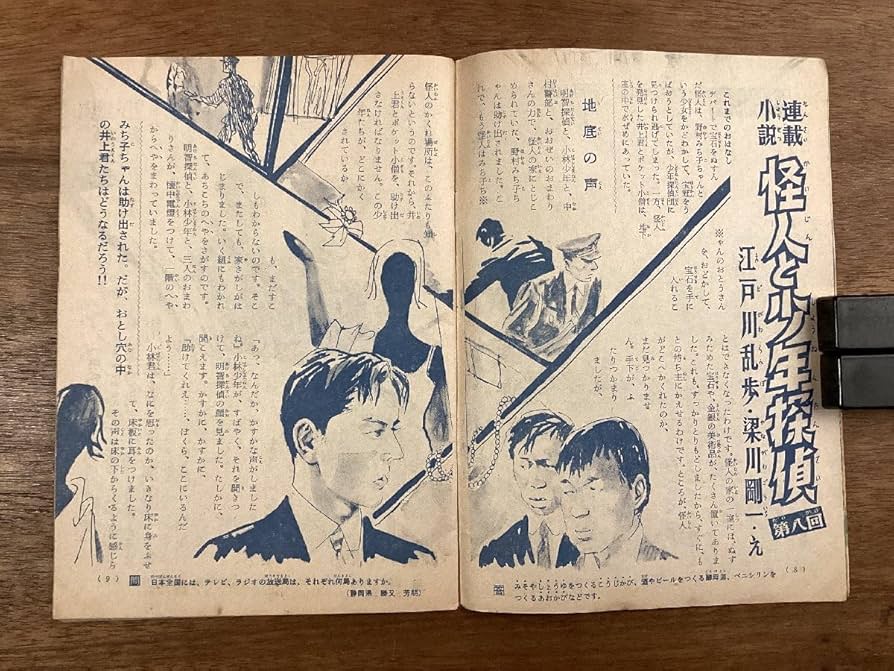 連載
小説
怪人と少年探偵
第八回
江戸川乱歩・梁川剛一・え
これまでのおはなし
デパートで宝石をぬすん
だ怪人は、野村みち子ちゃんと
いう少女をかどわかして、宝冠をう
ばおうとしていたが、少年探偵団に
見つけられ逃げてしまった。一方、怪人
を発見した井上君とポケット小僧は、地下
室の中で水ぜめにあっていた。
地底の声
明智探偵と、小林少年と、中
村警部と、おおぜいのおまわり
さんの力で、怪人の家にとじこ
められていた、野村みち子ち
ゃんは助け出されました。こ
れで、もう怪人はみち子ち※
※ゃんのおとうさん
を、おどかして、
宝石を手に
入れるこ
とはできなくなったわけです。怪人の家の一室には、ぬす
みためた宝石や、金銀の美術品が、たくさん置いてありま
した。これも、すっかりとりもどしましたから、すぐにも
との持ち主にかえせるわけです。ところが、怪人
がどこへかくれたのか、
まだ見つかりませ
ん。手下が、ふ
たりつかまり
ましたが、
(8)
答
みそやしょうゆをつくるこうじかび、酒やビールをつくる酵母菌、ペニシリンを
つくるあおかびなどです。
怪人のかくれ場所は、このふたりも知
らないというのです。それから、井
上君とポケット小僧を、助け出
さなければなりません。この少
年たちが、どこにかく
されているか
も、まだすこ
しもわからないのです。そこ
で、またしても、家さがしがは
じまりました。いく組にもわかれ
て、あちこちのへやをさがすのです。
明智探偵と、小林少年と、三人のおまわ
りさんが、懐中電燈をつけて、一階のへや
からへやをまわっていました。
みち子ちゃんは助け出された。だが、おとし穴の中
の井上君たちはどうなるだろう!!
「あっ、なんだか、かすかな声がしました
ね。」小林少年が、すばやく、それを聞きつ
けて、明智探偵の顔を見ました。たしかに、
聞こえます。かすかに、かすかに、
「助けてくれえ……、ぼくら、ここにいるんだ
よう……。」
小林君は、なにを思ったのか、いきなり床に身をふせ
て、床板に耳をつけました。
その声は床の下からくるように感じら
(9)
問
日本全国には、テレビ、ラジオの放送局は、それぞれ何局ありますか。
(静岡県 勝又 芳明)